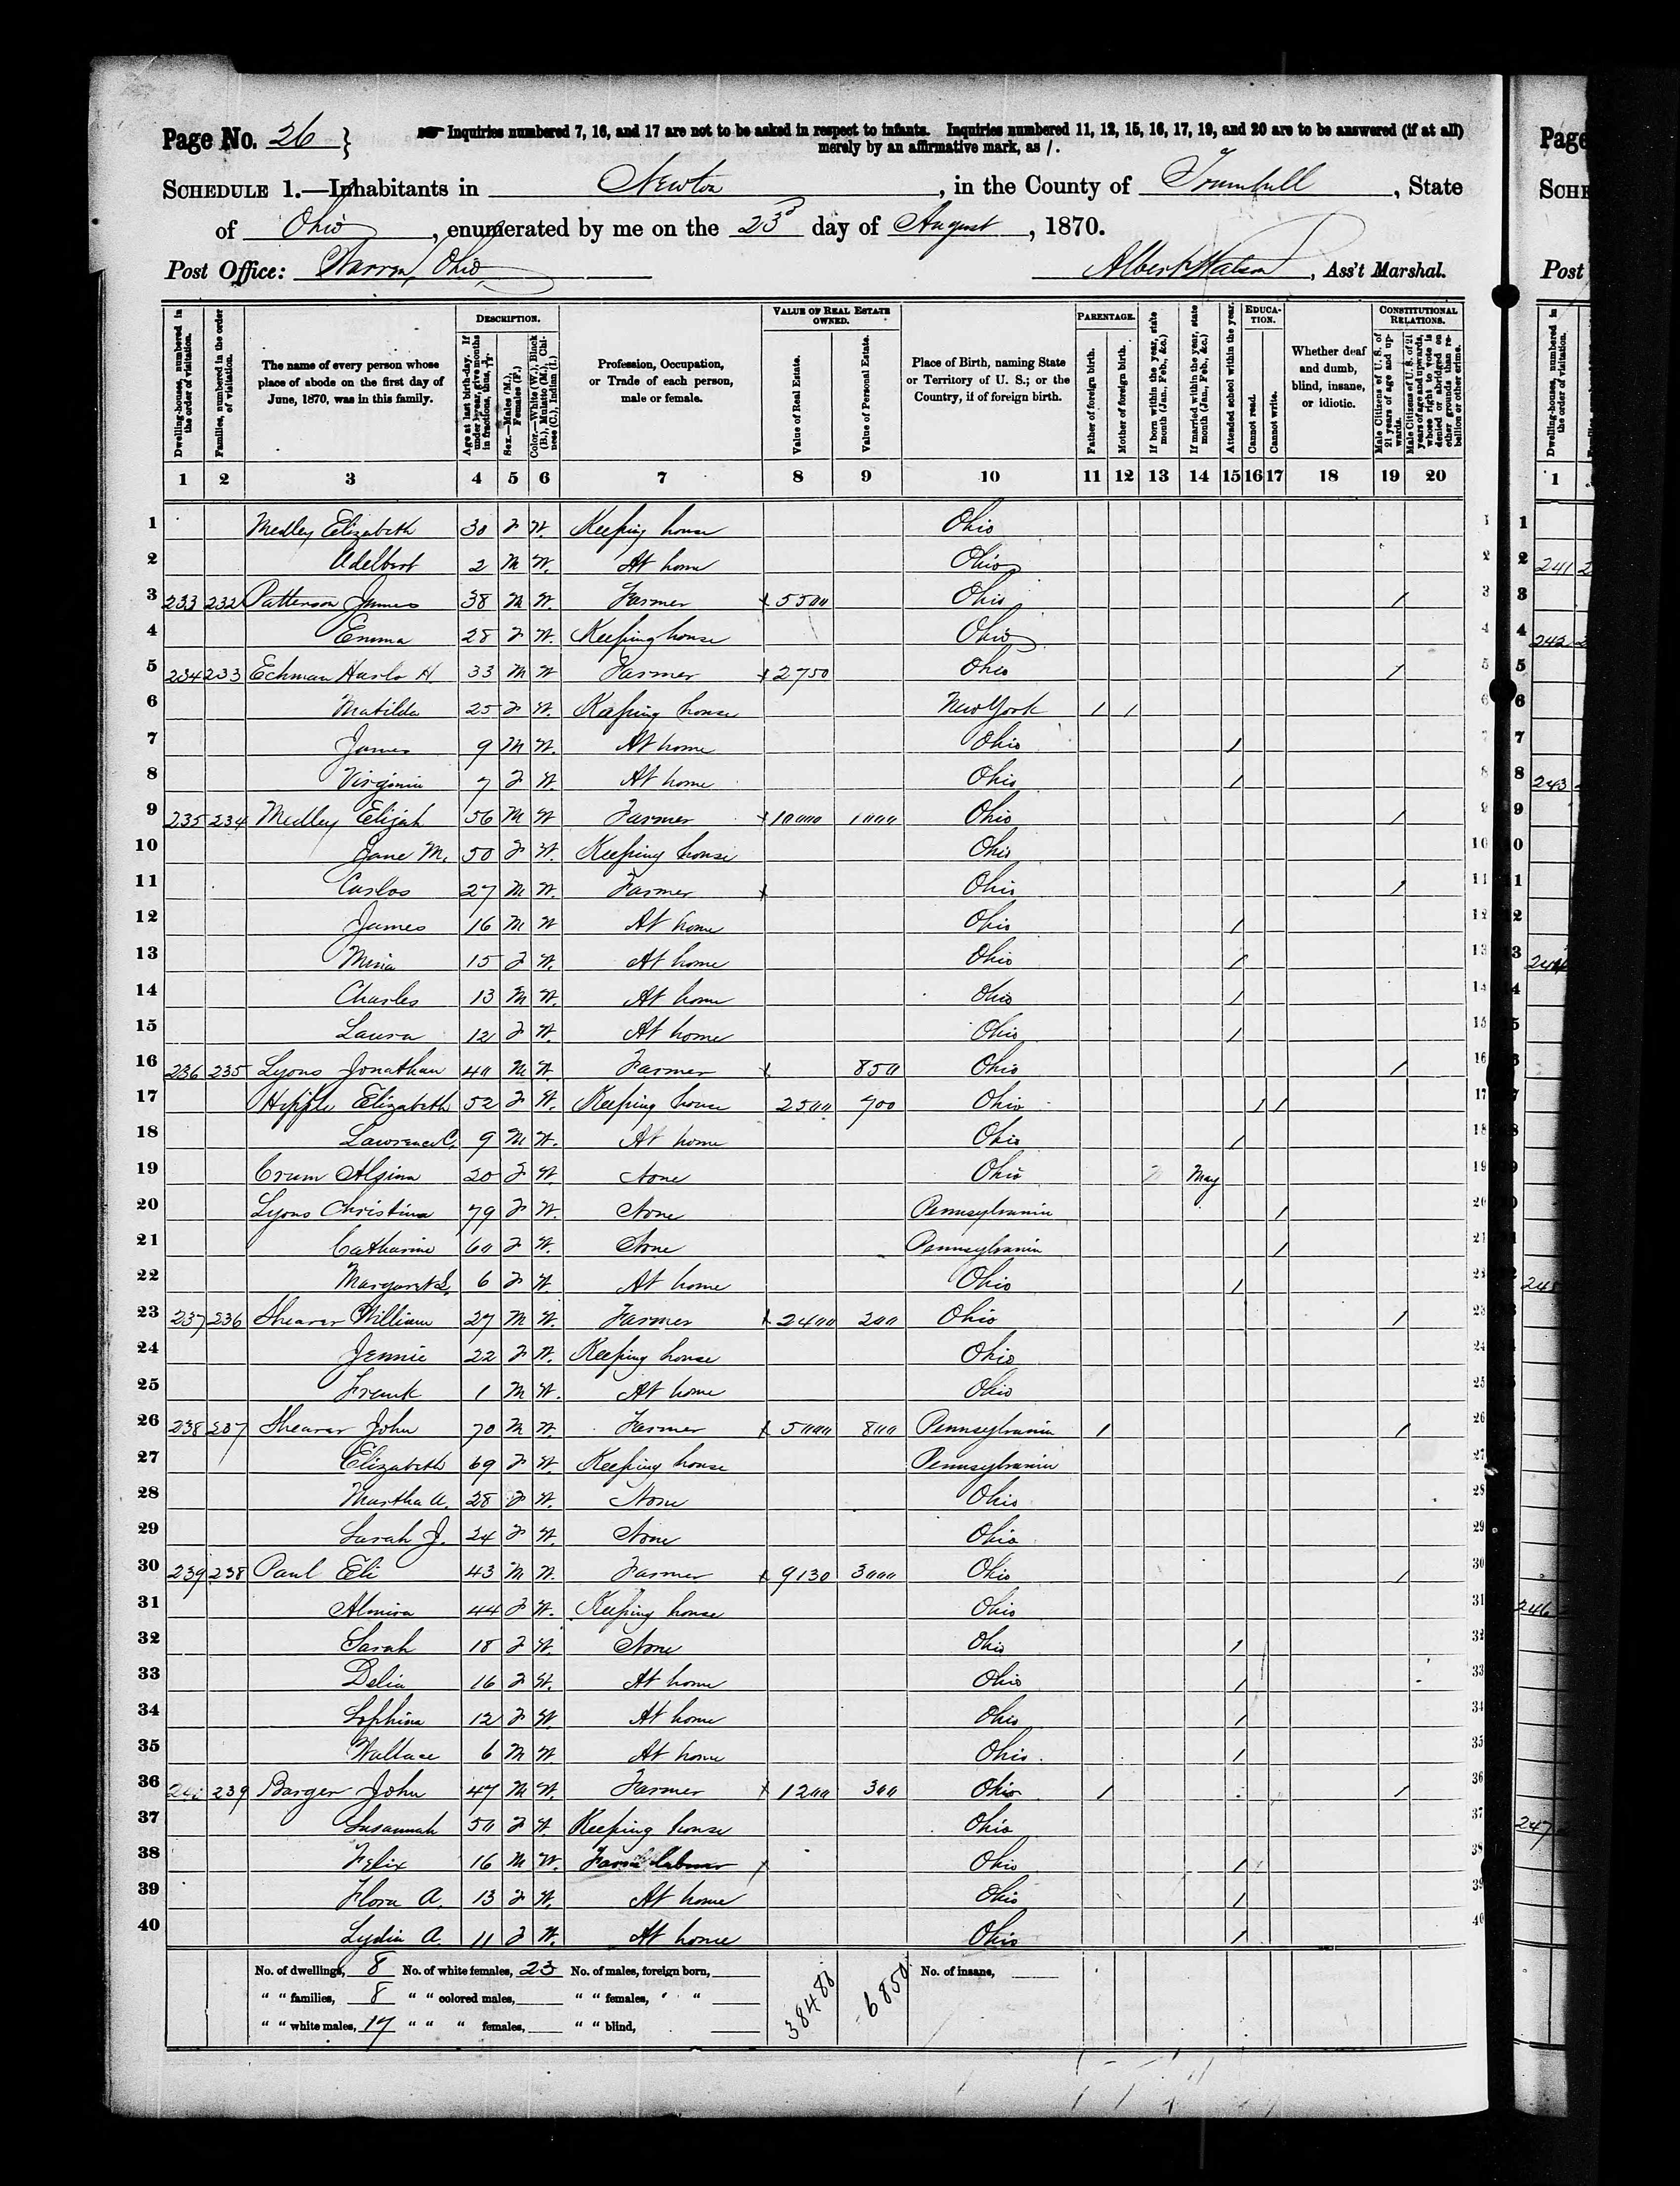 Page No. 26 }
Inquiries numbered 7, 16, and 17 are not to be asked in respect to infants. Inquiries numbered 11, 12, 15, 16, 17, 19, and 20 are to be answered (if at all)
merely by an affirmative mark, as /.
SCHEDULE 1.—Inhabitants in Newton, in the County of Trumbull, State
of Ohio, enumerated by me on the 23d day of August, 1870.
Post Office: Warren, Ohio
Albert Watson, Ass't Marshal.
Dwelling-houses, numbered in the order of visitation.
Families, numbered in the order of visitation.
The name of every person whose place of abode on the first day of June, 1870, was in this family.
DESCRIPTION.
Sex.—Males (M.), Females (F.)
Color.—White (W.), Black (B.), Mulatto (M.), Chinese (C.), Indian (I.)
Profession, Occupation, or Trade of each person, male or female.
VALUE OF REAL ESTATE OWNED.
Value of Real Estate.
Value of Personal Estate.
Place of Birth, naming State or Territory of U. S.; or the Country, if of foreign birth.
PARENTAGE.
Father of foreign birth.
Mother of foreign birth.
If born within the year, state month (Jan., Feb., &c.)
If married within the year, state month (Jan., Feb., &c.)
Attended school within the year.
EDUCATION.
Cannot read.
Cannot write.
Whether deaf and dumb, blind, insane, or idiotic.
CONSTITUTIONAL RELATIONS.
Male Citizens of U. S. of 21 years of age and upwards.
Male Citizens of U. S. of 21 years of age and upwards, whose right to vote is denied or abridged on other grounds than rebellion or other crime.
1 2 3 4 5 6 7 8 9 10 11 12 13 14 15 16 17 18 19 20
1 Medley Elizabeth 30 F W. Keeping house Ohio 1
2 Adelbert 2 M W. At home Ohio 2
3 233 232 Patterson James 38 M W. Farmer x 5500 Ohio / 3
4 Emma 28 F W. Keeping house Ohio 4
5 234 233 Echman Harlo H. 33 M W Farmer x 2750 Ohio / 5
6 Matilda 25 F W. Keeping house New York / / 6
7 James 9 M W. At home Ohio / 7
8 Virginia 7 F W. At home Ohio / 8
9 235 234 Medley Elijah 56 M W Farmer x 10000 1000 Ohio / 9
10 Jane M. 50 F W. Keeping house Ohio 10
11 Carlos 27 M W. Farmer x Ohio / 11
12 James 16 M W At home Ohio / 12
13 15 F W. At home Ohio / 13
14 Charles 13 M W. At home Ohio / 14
15 Laura 12 F W. At home Ohio / 15
16 236 235 Lyons Jonathan 40 M W. Farmer x 850 Ohio / 16
17 Hipple Elizabeth 52 F W. Keeping house 2500 700 Ohio / / 17
18 Lawrence C. 9 M W. At home Ohio / 18
19 Crum Alsina 20 F W. None Ohio May 19
20 Lyons Christina 79 F W. None Pennsylvania / 20
21 Catharine 60 F W. None Pennsylvania / 21
22 Margaret S. 6 F W. At home Ohio / 22
23 237 236 Shearer William 27 M W. Farmer x 2400 200 Ohio / 23
24 Jennie 22 F W. Keeping house Ohio 24
25 Frank 1 M W. At home Ohio 25
26 238 237 Shearer John 70 M W. Farmer x 5000 800 Pennsylvania / / 26
27 Elizabeth 69 F W. Keeping house Pennsylvania 27
28 Martha A. 28 F W. None Ohio 28
29 Sarah J. 24 F W. None Ohio 29
30 239 238 Paul Eli 43 M W. Farmer x 9130 3000 Ohio / 30
31 Almira 44 F W. Keeping house Ohio 31
32 Sarah 18 F W. None Ohio / 32
33 Delia 16 F W. At home Ohio / 33
34 Sophina 12 F W At home Ohio / 34
35 Wallace 6 M W. At home Ohio / 35
36 239 Barger John 47 M W. Farmer x 1200 300 Ohio / / 36
37 Susannah 50 F W. Keeping house Ohio 37
38 Felix 16 M W. Farm laborer x Ohio / 38
39 Flora A. 13 F W. At home Ohio / 39
40 Lydia A. 11 F W. At home Ohio / 40
No. of dwellings, 8 No. of white females, 23 No. of males, foreign born, 38480 6850 No. of insane,
" " families, 8 " " colored males, " " females, " "
" " white males, 17 " " " females, " " blind,
Page
SCHE
Post
Dwelling-houses, numbered in the order of visitation.
1
241
242
243
245
246
247